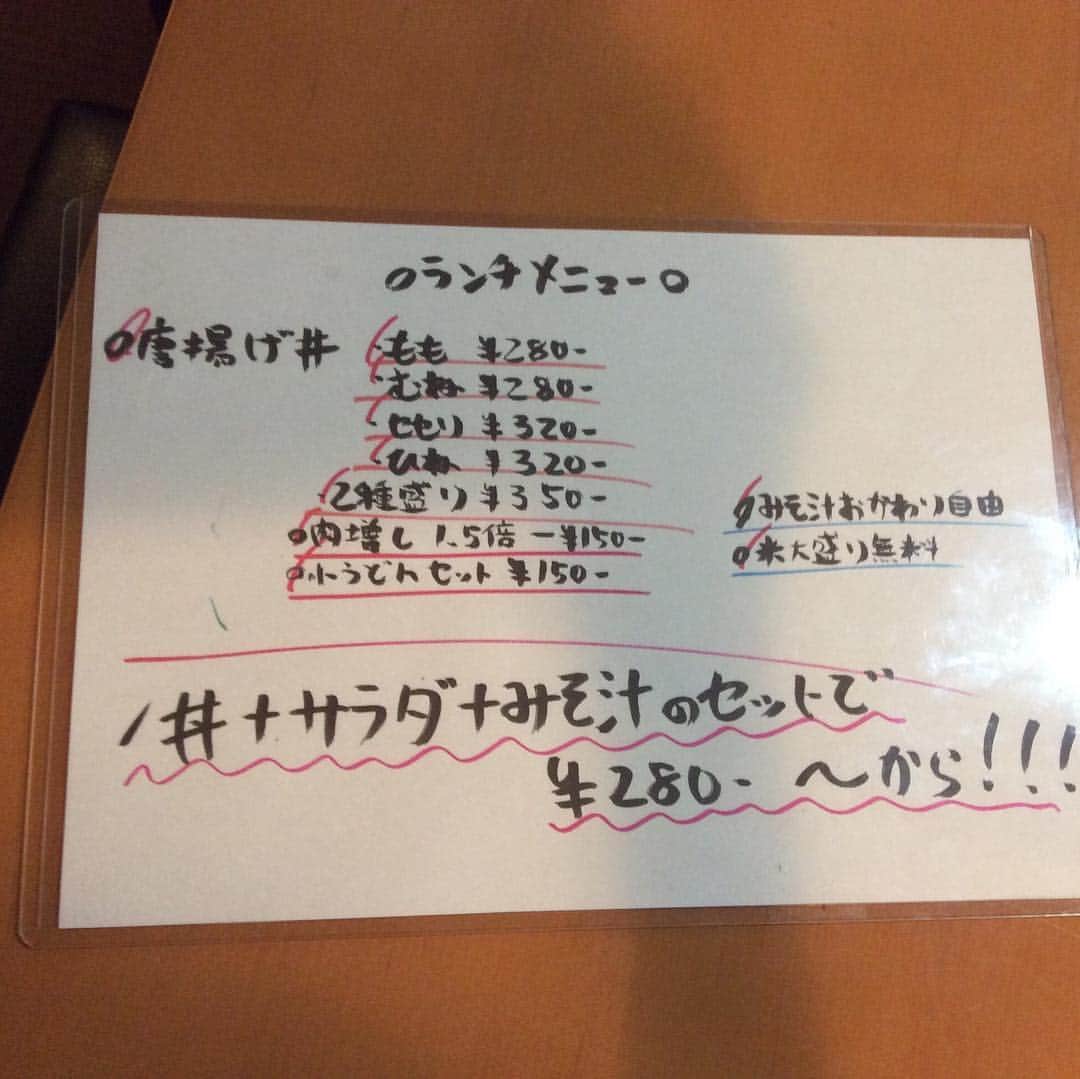 ○ランチメニュー○
○唐揚げ丼
・もも ¥280-
・むね ¥280-
・せせり ¥320-
・ひね ¥320-
・2種盛り ¥350-
○肉増し 1.5倍 ー¥150-
○小うどんセット ¥150-
○みそ汁おかわり自由
○米大盛り無料
丼+サラダ+みそ汁のセットで
¥280- 〜から!!!